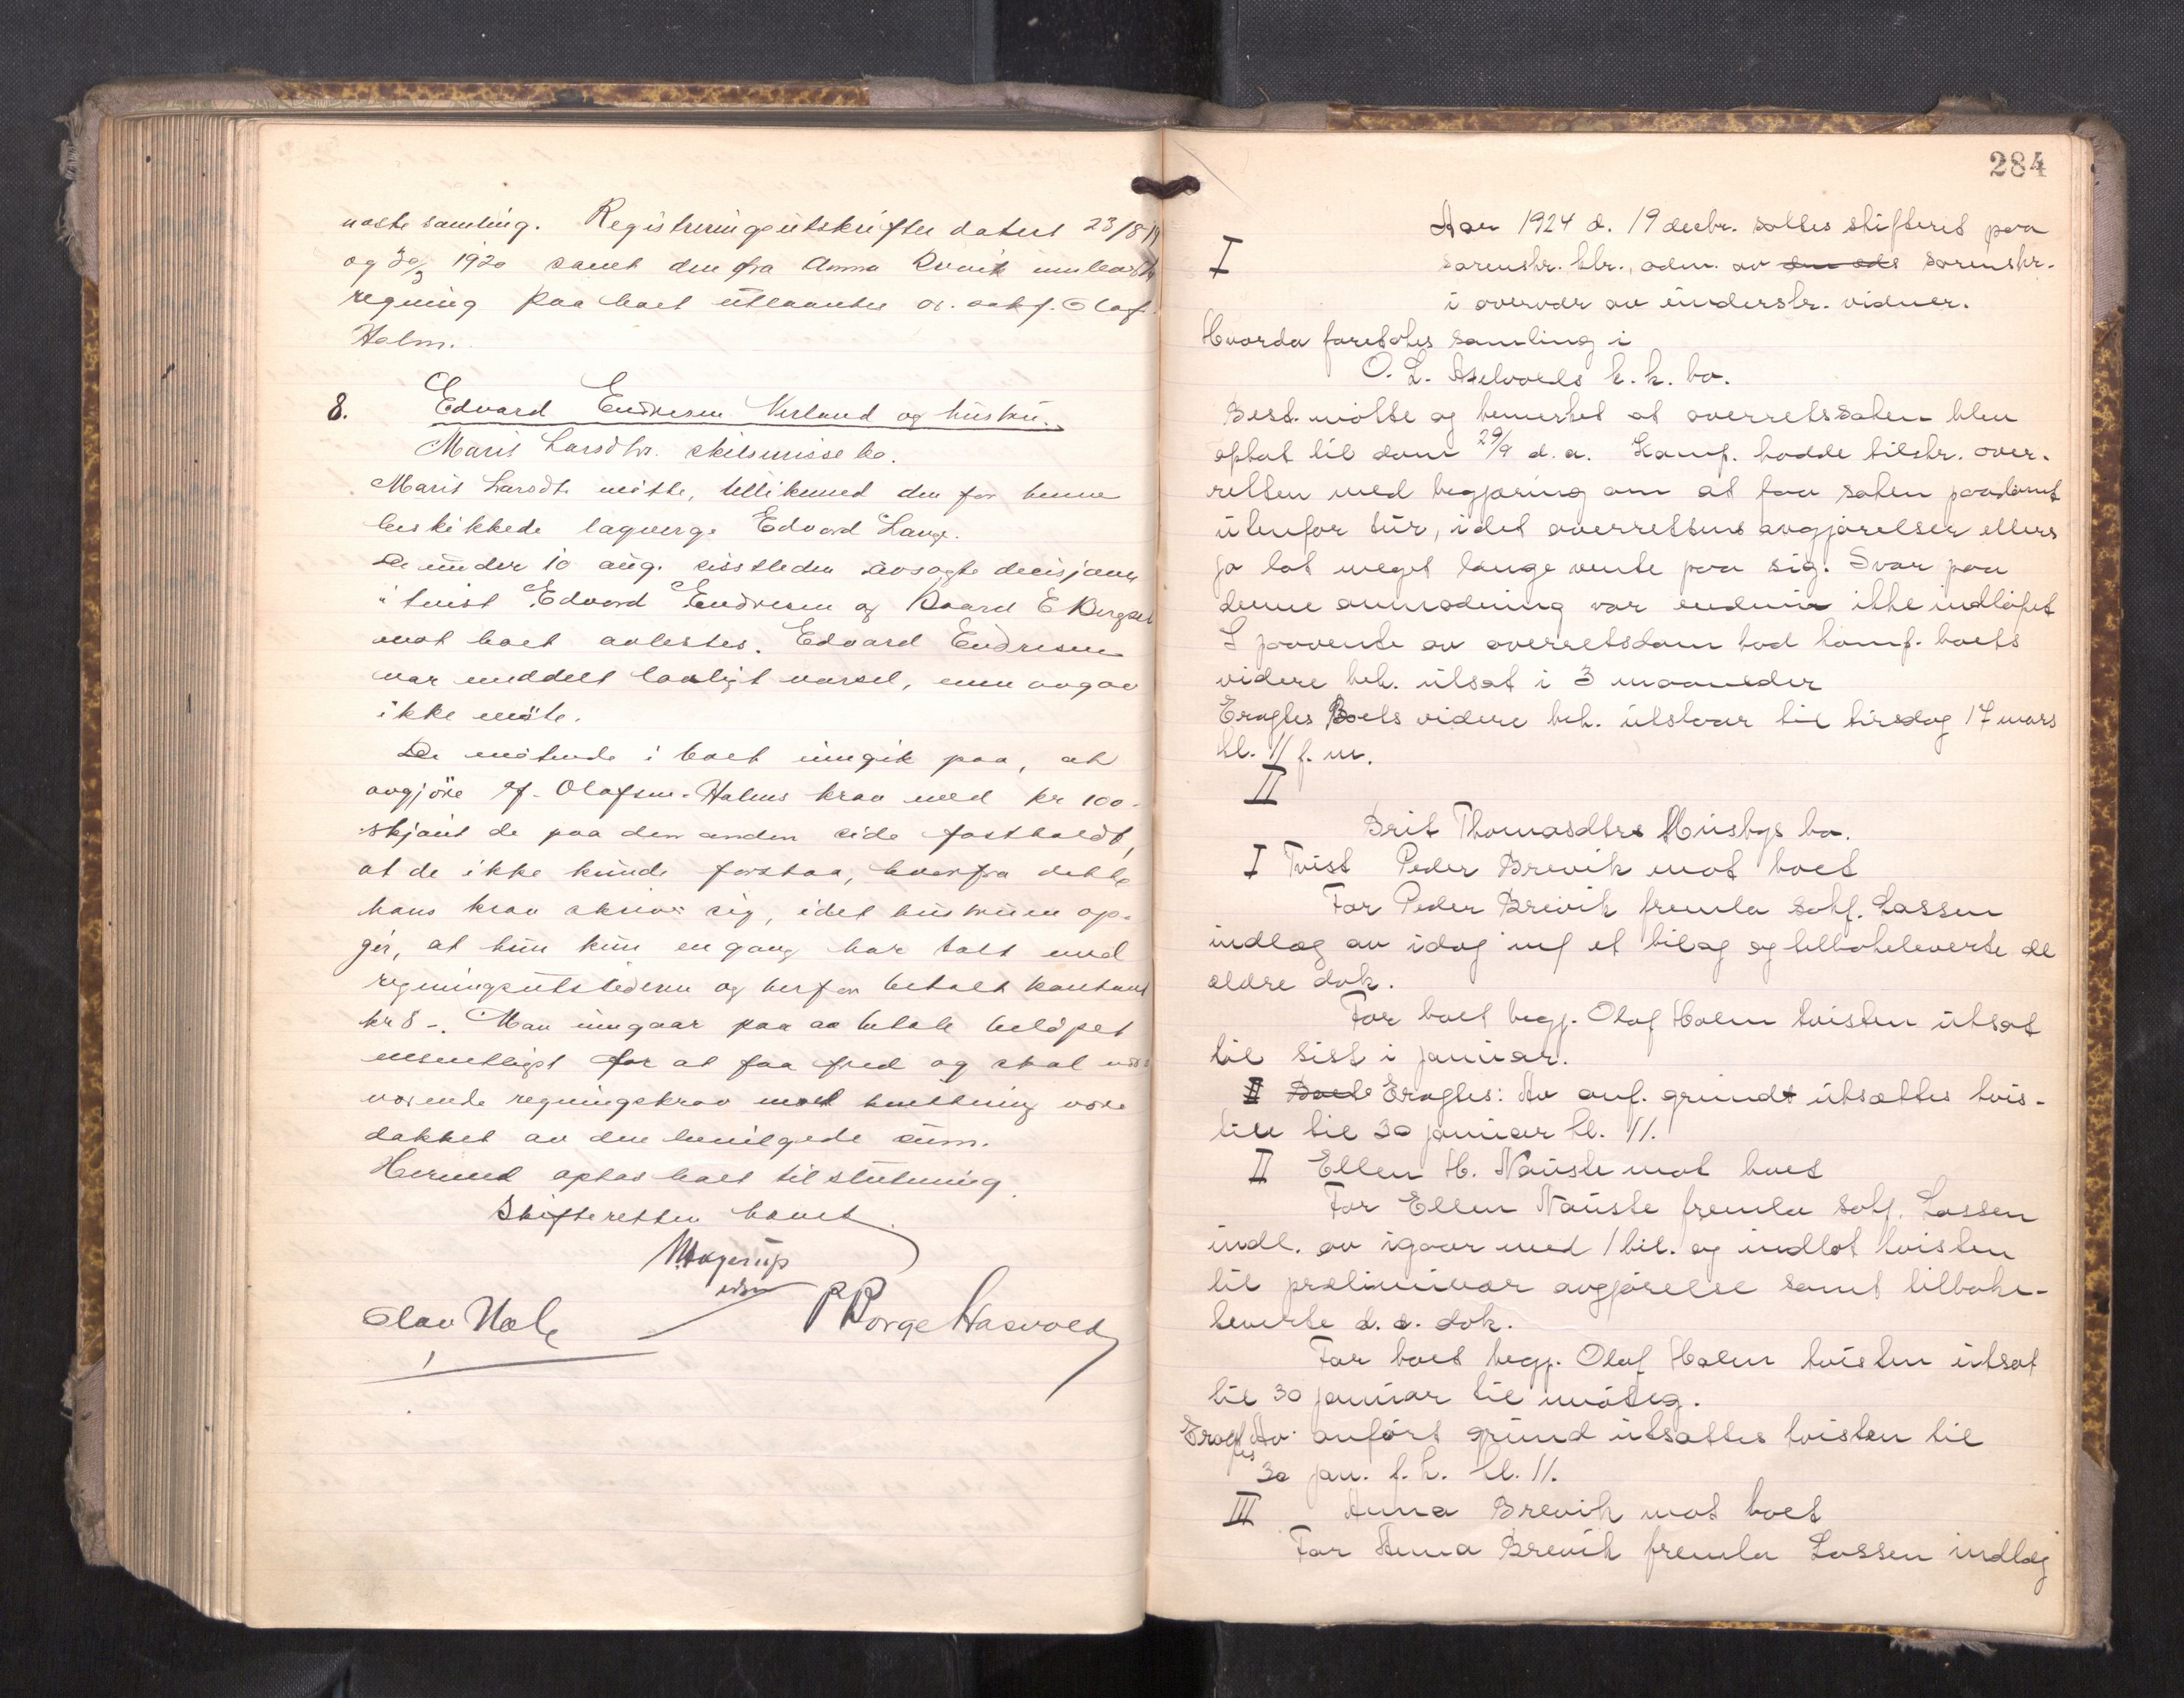 næste samling. Registreringsutskrifter datert 23/8 19
og 30/3 1920 samt den fra Anna innleverte
regning paa boet utlaantes o.r. sakf. Olaf
Holm.
8. Edvard Endresen Verland og hustru
Marit Larsdtr. skilsmisse bo.
Marit Larsdtr møtte, tillikemed den for henne
beskikkede lagverge Edvard Lange.
De under 10 aug. sisstleden avsagte decisjoner
i tvist Edvard Endresen og Baard E Bergset
mot boet avlestes. Edvard Endresen
var meddelt lovligt varsel, men avgav
ikke møte.
De møtende i boet inngik paa, at
avgjöre sf. Olafsen-Holms krav med kr 100-
skjönt de paa den anden side fastholdt,
at de ikke kunde forstaa, hvorfra dette
hans krav skriver sig, idet hustruen op-
gir, at hun kun en gang har talt med
regningsutstederen og herfor betalt kontant
kr 8-. Man inngaar paa aa betale beløpet
vesentligst for at faa fred og skal
værende regningskrav mot være
dækket av den bevilgede sum.
Hermed optas boet til slutning.
Skifteretten hævet
Hagerup
Olav Hole P Borge Hasvold
284
I Aar 1924 d. 19 decbr. sattes skifteret paa
sorenskr. ktr., adm. av den eds sorenskr.
i overvær av underskr. vidner.
Hvorda foretokes samling i
O. L. Aselvolds k.k. bo.
Best. møtte og bemerket at overretssaken blev
optat til dom 29/9 d.a. Komp. hadde tilskr. over-
retten med begjæring om at faa saken paadømt
utenfor tur, idet overrettens avgjørelser ellers
jo lot meget længe vente paa sig. Svar paa
denne anmodning var endnu ikke indløpet
I paavente av overretsdom bad komp. boets
videre beh. utsat i 3 maaneder
Eragtes Boets videre beh. utstaar til tirsdag 17 mars
kl. 11 f.m.
II
Brit Thomasdtrs Husbys bo.
I Tvist Peder Brevik mot boet
For Peder Brevik fremla sakf. Lassen
indlæg av idag m/ et bilag og tilbakeleverte de
ældre dok.
For boet begj. Olaf Holm tvisten utsat
til sist i januar.
II Boets Eragtes: Av anf. grund utsættes tvis-
ten til 30 januar kl. 11.
II Ellen H. Nauste mot boet
For Ellen Nauste fremla sakf. Lassen
indl. av igaar med 1 bil. og indlot tvisten
til præliminær avgjørelse samt tilbake-
leverte d. æ. dok.
For boet begj. Olaf Holm tvisten utsat
til 30 januar til imøteg.
Eragtes Av anført grund utsættes tvisten til
30 jan. f.k. kl. 11.
III Anna Brevik mot boet
For Anna Brevik fremla Lassen indlæg